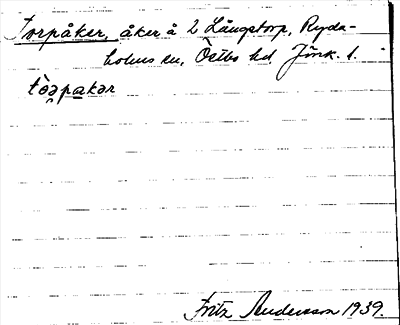 Torpåker, åker å 2 Långstorp, Ryda-
holms sn, Östbo hd Jönk. l.
tòəpakər
Fritz Andersson 1939.